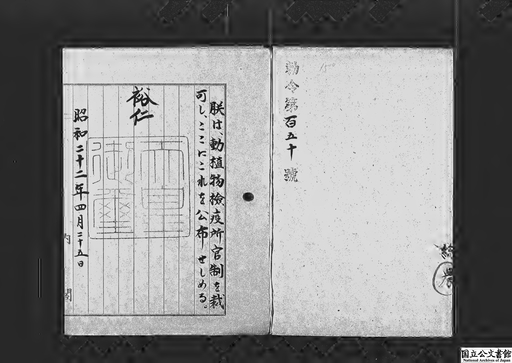 勅令第百五十號
朕は、動植物檢疫所官制を裁
可し、ここにこれを公布せしめる。
裕仁
天皇御璽
昭和二十二年四月二十五日
内閣
国立公文書館
National Archives of Japan